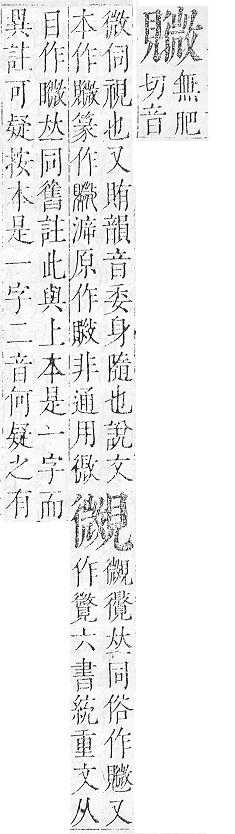 無肥
切音
微伺視也又賄韻音委身隨也說文
本作篆作原作非通用微
覹
覹𠀤同俗作又
作六書統重文从
目作矀𠀤同舊註此與上本是一字而
異註可疑按本是一字二音何疑之有